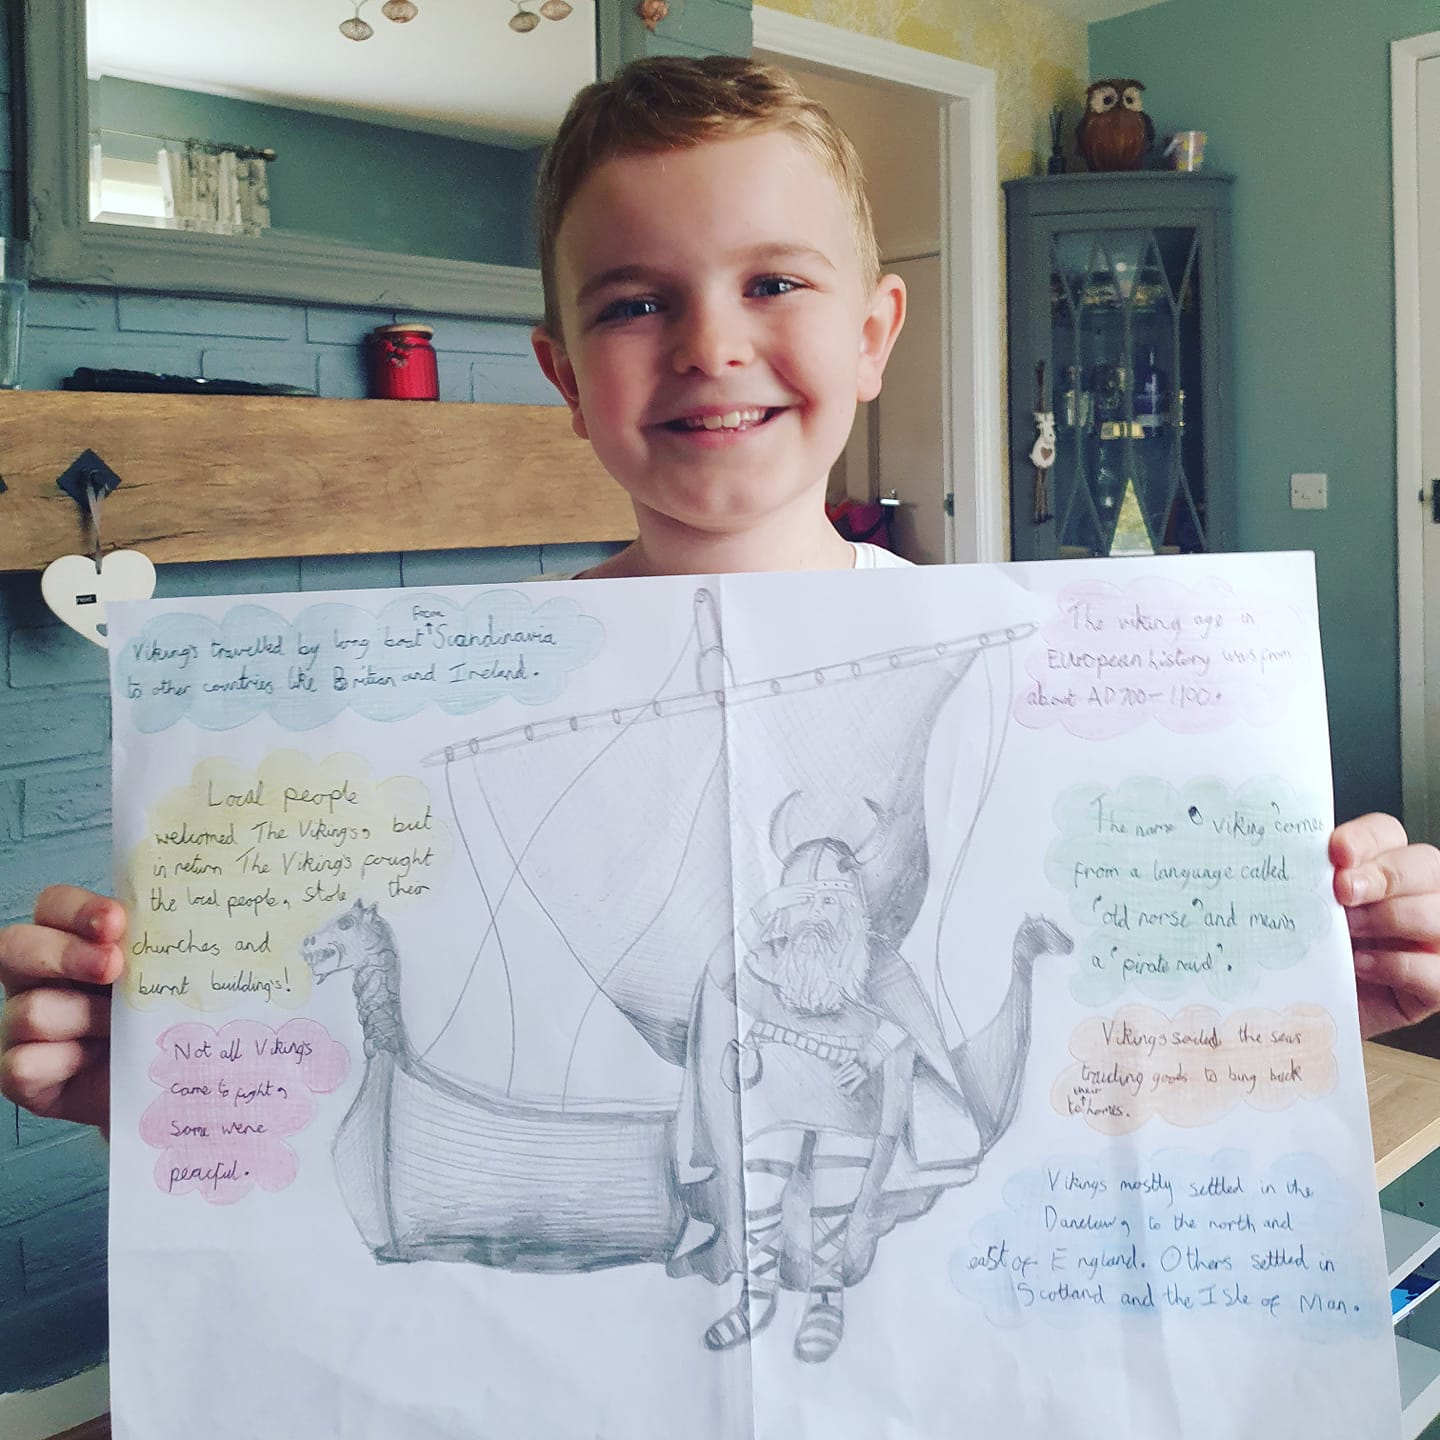 Vikings travelled by long boat from Scandinavia
to other countries like Britian and Ireland.
Local people
welcomed The Vikings, but
in return The Vikings fought
the local people, stole their
churches and
burnt buildings!
Not all Vikings
came to fight,
some were
peacful.
The viking age in
European history was from
about AD 700-1100.
The name "viking" comes
from a language called
"old norse" and means
a "pirate raid".
Vikings sailed the seas
traiding goods to bing back
to their homes.
Vikings mostly settled in the
Danelaw, to the north and
east of England. Others settled in
Scotland and the Isle of Man.